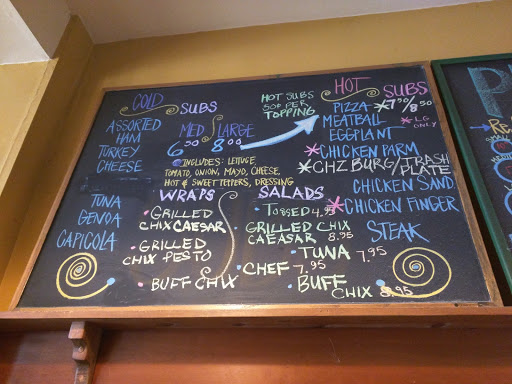 COLD SUBS
ASSORTED
HAM
TURKEY
CHEESE
TUNA
GENOA
CAPICOLA
MED LARGE
6.50 8.00
INCLUDES: LETTUCE,
TOMATO, ONION, MAYO, CHEESE,
HOT & SWEET PEPPERS, DRESSING
HOT SUBS
50¢ PER
TOPPING
HOT SUBS
PIZZA *7.00/8.50
MEATBALL *LG
ONLY
EGGPLANT
*CHICKEN PARM
*CHZ BURG/TRASH
PLATE
CHICKEN SAND.
*CHICKEN FINGER
STEAK
WRAPS
• GRILLED
CHIX CAESAR
• GRILLED
CHIX PESTO
• BUFF CHIX
SALADS
• TOSSED 4.95
GRILLED CHIX
CAEASAR 8.95
• TUNA 7.95
• CHEF 7.95
• BUFF
CHIX 8.95